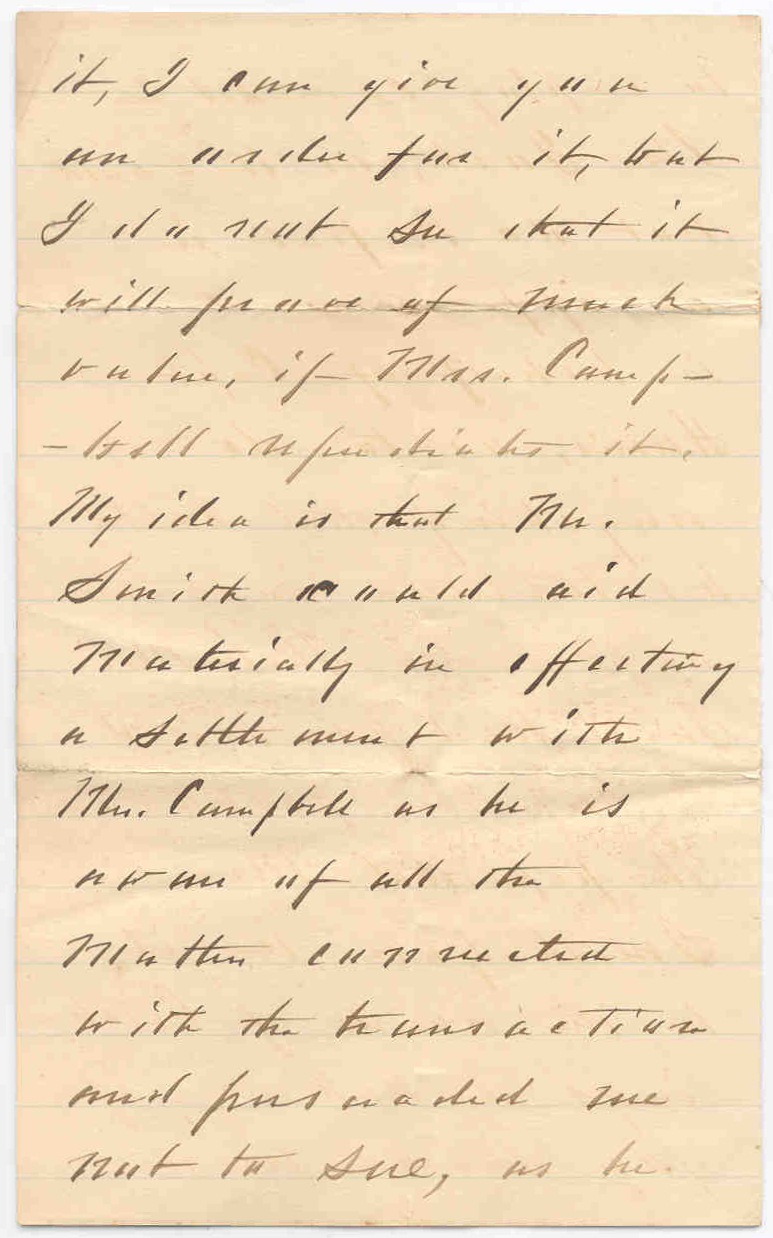 it, I can give you
an order for it, but
I do not see that it
will prove of much
value, if Mrs. Camp-
-bell repudiates it.
My idea is that Mr.
Smith could aid
Materially in effecting
a settlement with
Mr. Campbell as he is
aware of all the
Matters connected
with the transaction
and persuaded me
not to sue, as he